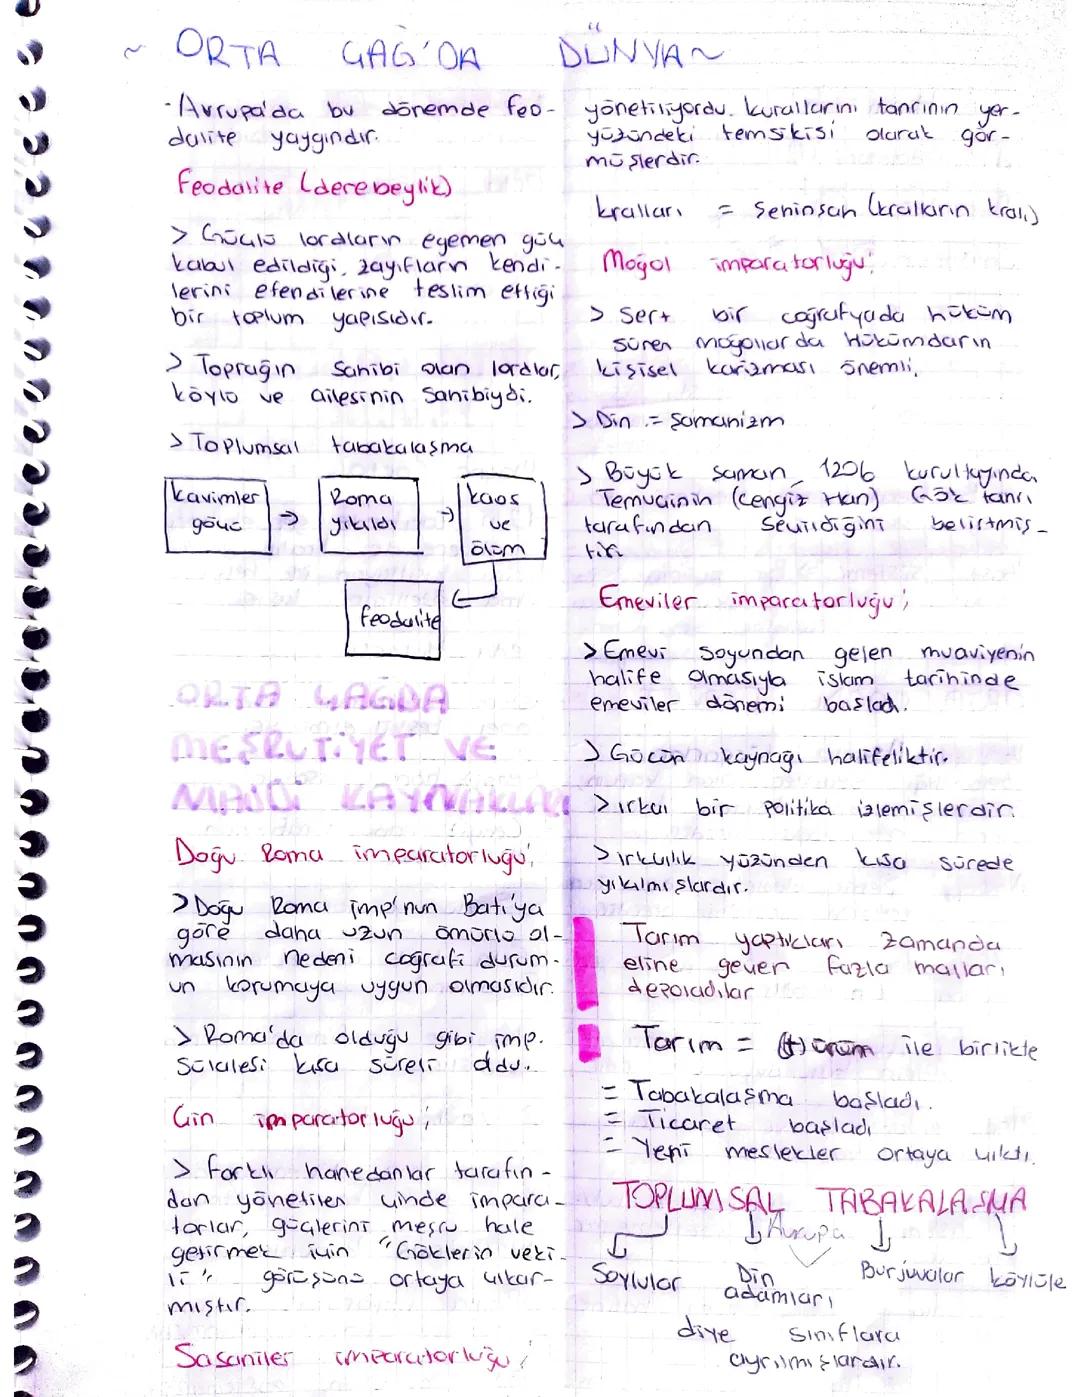 ~ ORTA ÇAĞ'DA DÜNYA ~
- Avrupa'da bu dönemde feo-
dalite yaygındır.
Feodalite (derebeylik)
> Güçlü lordların egemen güç
kabul edildiği, zayıfların kendi-
lerini efendilerine teslim ettiği
bir toplum yapısıdır.
> Toprağın sahibi olan lordlar,
köylü ve ailesinin sahibiydi.
> Toplumsal tabakalaşma
kavimler
göçü
→
Roma
yıkıldı
→
kaos
ve
ölüm
feodalite
ORTA ÇAĞDA
MEŞRUTİYET VE
MADDİ KAYNAKLARI
Doğu Roma imparatorluğu;
> Doğu Roma imp'nun Batı'ya
göre daha uzun ömürlü ol-
masının nedeni coğrafi durum-
un korumaya uygun olmasıdır.
> Roma'da olduğu gibi imp.
sülalesi kısa süreli oldu.
Çin imparatorluğu;
> Farklı hanedanlar tarafın-
dan yönetilen çinde impara-
torlar, güçlerini meşru hale
getirmek için "Göklerin veki-
li" görüşünü ortaya çıkar-
mıştır.
Sasaniler imparatorluğu;
yönetiliyordu. kurallarını tanrının yer-
yüzündeki temsikisi olarak gör-
müşlerdir.
kralları = Şehinşah (kralların kralı)
Moğol imparatorluğu;
> Sert bir coğrafyada hüküm
süren moğollarda Hükümdarın
kişisel karizması önemli.
> Din = Şamanizm
> Büyük şaman, 1206 kurultayında
Temuçinin (Cengiz Han) Gök tanrı
tarafından seçildiğini belirtmiş-
tir.
Emeviler imparatorluğu;
> Emevi soyundan gelen muaviyenin
halife olmasıyla islam tarihinde
emeviler dönemi başladı.
> Gücün kaynağı halifeliktir.
> ırkçı bir politika izlemişlerdir.
> ırkçılık yüzünden kısa sürede
yıkılmışlardır.
Tarım yaptıkları zamanda
eline geçen fazla malları
depoladılar
Tarım = (+) ürün ile birlikte
= Tabakalaşma başladı.
= Ticaret başladı
= Yeni meslekler ortaya çıktı.
TOPLUMSAL TABAKALAŞMA
Avrupa
Soylular Din adamları Burjuvalar köylüle
diye sınıflara
ayrılmışlardır.